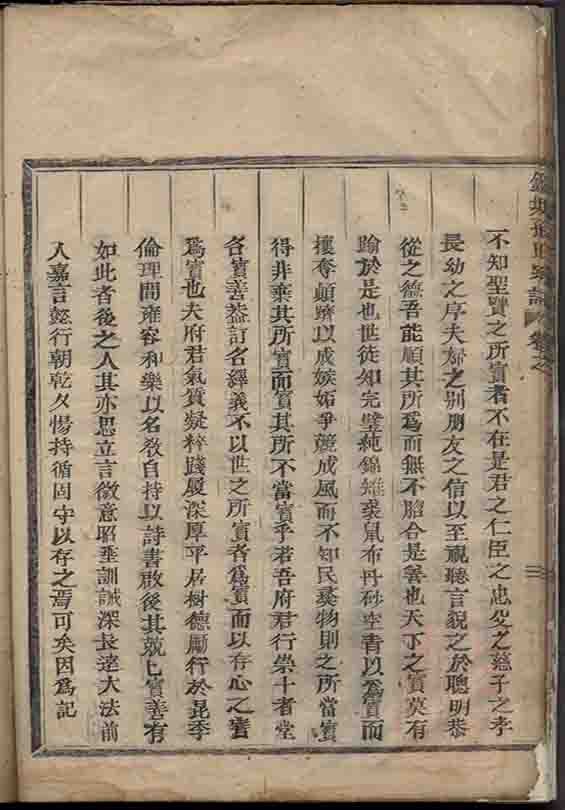 不知聖賢之所寳者不在是君之仁臣之忠父之慈子之孝
長幼之序夫婦之別朋友之信以至視聽言貌之於聰明恭
從之德吾能順其所爲而無不脗合是寳也天下之寳莫有
踰於是也世徒知完璧純錦雉裘鼠布丹砂空青以爲寳而
攘奪顛躋以成嫉妬爭競成風而不知民彛物則之所當寳
得非棄其所寳而寳其所不當寳乎若吾府君行崇十者堂
名寳善益訂名繹義不以世之所寳者爲寳而以存心之善
爲寳也夫府君氣質凝粹踐履深厚平居樹德勵行於昆季
倫理間雍容和樂以名敎自持以詩書啟後其兢兢寳善有
如此者後之人其亦思立言徽意昭垂訓誡深長遠大法前
人嘉言懿行朝乾夕惕持循固守以存之焉可矣因爲記
卷之
三